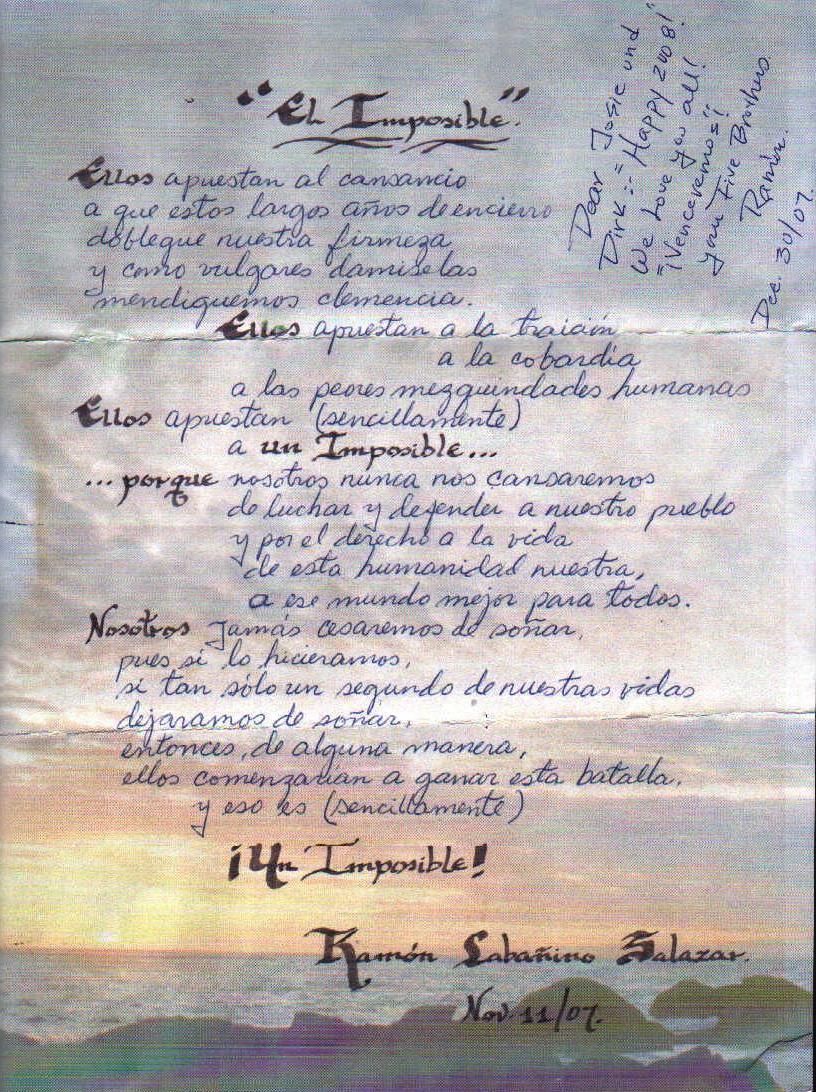 "El Imposible".
Ellos apuestan al cansancio
a que estos largos años de encierro
doblegue nuestra firmeza
y como vulgares damiselas
mendiguemos clemencia.
Ellos apuestan a la traición
a la cobardia
a las peores mezquindades humanas
Ellos apuestan (sencillamente)
a un Imposible...
...porque nosotros nunca nos cansaremos
de luchar y defender a nuestro pueblo
y por el derecho a la vida
de esta humanidad nuestra,
a ese mundo mejor para todos.
Nosotros Jamás cesaremos de soñar,
pues si lo hicieramos,
si tan sólo un segundo de nuestras vidas
dejaramos de soñar,
entonces, de alguna manera,
ellos comenzarían a ganar esta batalla,
y eso es (sencillamente)
¡Un Imposible!
Ramón Labañino Salazar.
Nov. 11/07.
Dear Josie und
Dirk =:- Happy 2008!
We Love you all!
"¡Venceremos"!
your Five Brothers
Ramón.
Dec. 30/07.